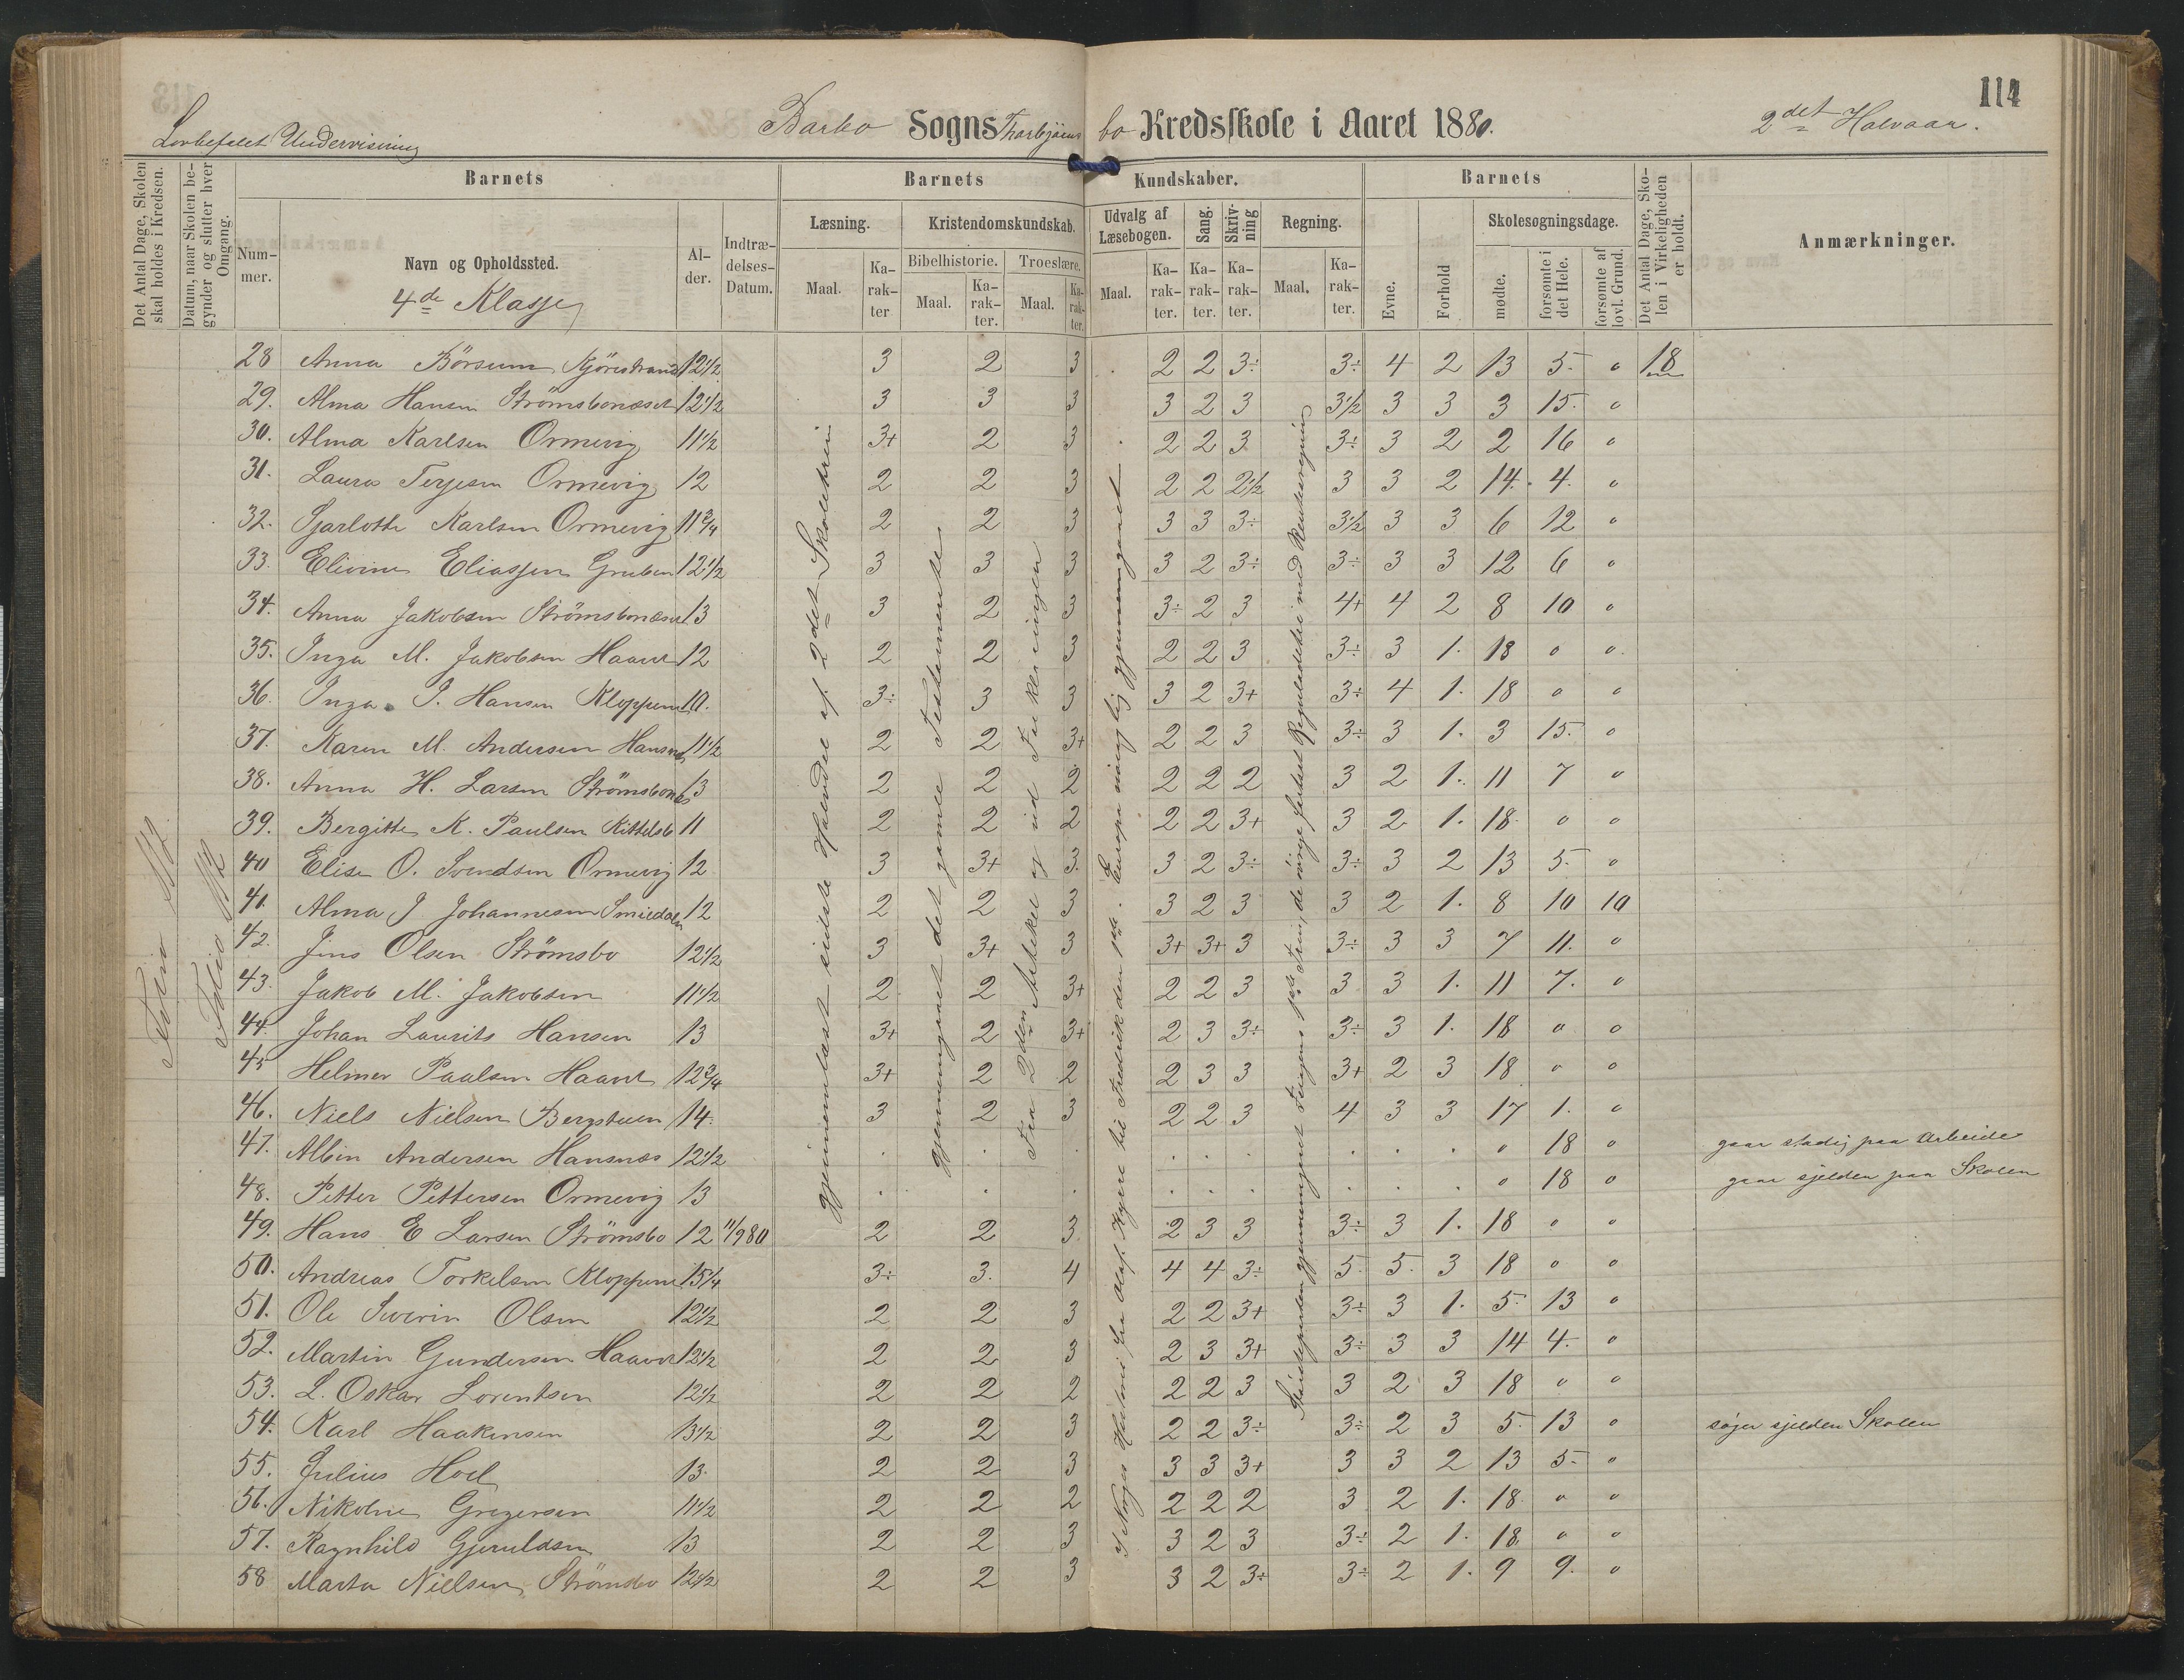 114
Barbo Sogns Thorbjörnsbo Kredsskole i Aaret 1880.
2det Halvaar.
Lovbefalet Undervisning
Det Antal Dage, Skolen skal holdes i Kredsen.
Datum, naar Skolen begynder og slutter hver Omgang.
Barnets
Barnets Kundskaber.
Barnets
Det Antal Dage, Skolen i Virkeligheden er holdt.
Anmærkninger.
Nummer.
Navn og Opholdssted.
4de Klasse
Alder.
Indtrædelses-Datum.
Læsning.
Kristendomskundskab.
Udvalg af Læsebogen.
Sang.
Skrivning
Regning.
Evne.
Forhold
Skolesøgningsdage.
Bibelhistorie.
Troeslære.
Maal.
Karakter
Maal.
Karakter.
Maal.
Karakter.
Maal.
Karakter.
Karakter.
Karakter.
Maal.
Karakter.
mødte.
forsømte i det Hele.
forsømte af lovl. Grund.
28 Anna Börsum 12 1/2 3 2 3 2 2 3÷ 3÷ 4 2 13 5 0 18
29. Alma Hansen Strömsbonæset 12 1/2 3 3 3 3 2 3 3 1/2 3 3 3 15 0
30. Alma Karlsen Ormevig 11 1/2 3+ 2 3 2 2 3 3÷ 3 2 2 16 0
31. Laura Terjesen Ormevig 12 2 2 3 2 2 2 1/2 3 3 2 14 4 0
32. Sjarlotte Karlsen Ormevig 11 3/4 2 2 3 3 3 3÷ 3 1/2 3 3 6 12 0
33. Elivine Eliassen Gruben 12 1/2 3 3 3 3 2 3÷ 3÷ 3 3 12 6 0
34. Anna Jakobsen Strömsbonæset 13 3 2 3 3÷ 2 3 4+ 4 2 8 10 0
35. Inga M. Jakobsen 12 2 2 3 2 2 3 3÷ 3 1. 18 0 0
36. Inga J. Hansen Kloppene 10. 3÷ 3 3 3 2 3+ 3÷ 4 1. 18 0 0
37. Karen M. Andersen Hansnes 11 1/2 2 2 3+ 2 2 3 3÷ 3 1. 3 15. 0
38. Anna H. Larsen Strömsbonæs 13 2 2 2 2 2 2 3 2 1. 11 7 0
39. Bergitte K. Paulsen Kittelsb 11 2 2 2 2 2 3+ 3 2 1. 18. 0 0
40 Elise O. Svendsen Ormevig 12 3 3+ 3. 3 2 3÷ 3÷ 3 2 13 5 0
41. Alma J Johannesen Smiedalen 12 2 2 3 3 2 3 3 2 1. 8 10 10
42. Jens Olsen Strömsbo 12 1/2 3 3+ 3 3+ 3+ 3 3÷ 3 3 7 11. 0
43. Jakob M. Jakobsen 11 1/2 2 2 3+ 2 2 3 3 3 1. 11 7. 0
44. Johan Laurits Hansen 13 3+ 2 3+ 2 3 3÷ 3÷ 3 1. 18 0 0
45 Helmer Paalsen 12 3/4 3+ 2 2 2 3 3 3+ 2 3 18 0 0
46. Niels Nielsen Bergsteen 14. 3 2 3 2 2 3 4 3 3 17 1. 0
47. Albin Andersen Hansnæs 12 1/2 . . . . . . . . . 0 18 0 gaar stadig paa Arbeide
48. Petter Pettersen Ormevig 13 . . . . . . . . . 0 18 0 gaar sjelden paa Skolen
49. Hans E Larsen Strömsbo 12 11/9 80 2 2 3 2 3 3 3÷ 3 1. 18 0 0
50. Andreas Torkelsen Kloppene 13 1/4 3÷ 3. 4 4 4 3÷ 5. 5. 3 18 0 0
51. Ole Severin Olsen 12 1/2 2 2 3 2 2 3+ 3÷ 3 1. 5. 13 0
52. Martin Gundersen 12 1/2 2 2 3 2 3 3+ 3÷ 3 3 14 4. 0
53. L. Oskar Lorentsen 12 1/2 2 2 2 2 2 3 3 2 3 18 0 0
54. Karl Haakensen 13 1/2 2 2 3 2 2 3÷ 3÷ 2 3 5. 13 0 søger sjelden Skolen
55. Julius Hoel 13. 2 2 3 3 3 3+ 3 3 2 13 5. 0
56. Nikoline Gregersen 11 1/2 2 2 2 2 2 2 3 2 1. 18. 0 0
57. Ragnhild Gjeruldsen 13 2 2 3 3 2 3 3÷ 2 1. 18. 0 0
58 Marta Nielsen Strömsbo 12 1/2 2 2 3 3 2 3÷ 3÷ 2 1. 9 9. 0
gjennemlæst sidste Halvdel af 2det Skoletrin
gjennemgaaet det gamle Testamente
Fra 2den Artikel og ud Forklaringen
af Norges Historie fra Olaf Kyrre til Fredrik den 1ste. Europa nöiagtig gjennemgaaet